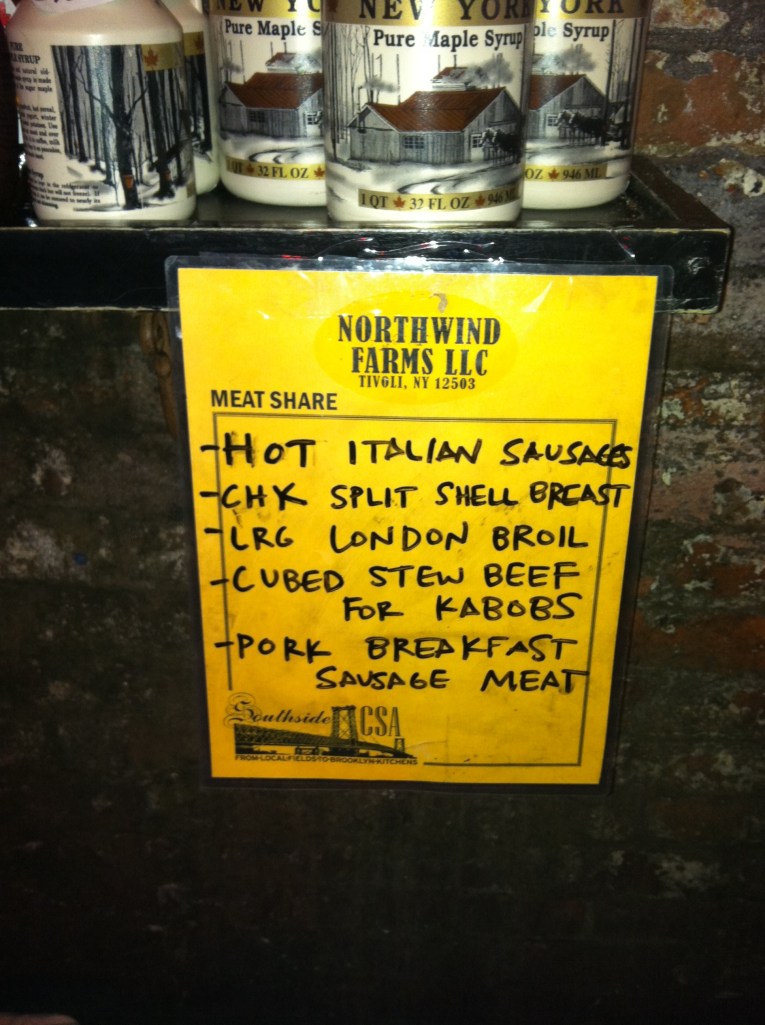 NEW YORK
Pure Maple Syrup
1 QT 32 FL OZ 946 ML
Pure Maple S
QT 32 FL OZ
YORK
ple Syrup
OZ 946 ML
NORTHWIND
FARMS LLC
TIVOLI, NY 12503
MEAT SHARE
-HOT ITALIAN SAUSAGES
-CHK SPLIT SHELL BREAST
-LRG LONDON BROIL
-CUBED STEW BEEF
FOR KABOBS
-PORK BREAKFAST
SAUSAGE MEAT
Southside CSA
FROM·LOCAL·FIELDS·TO·BROOKLYN·KITCHENS